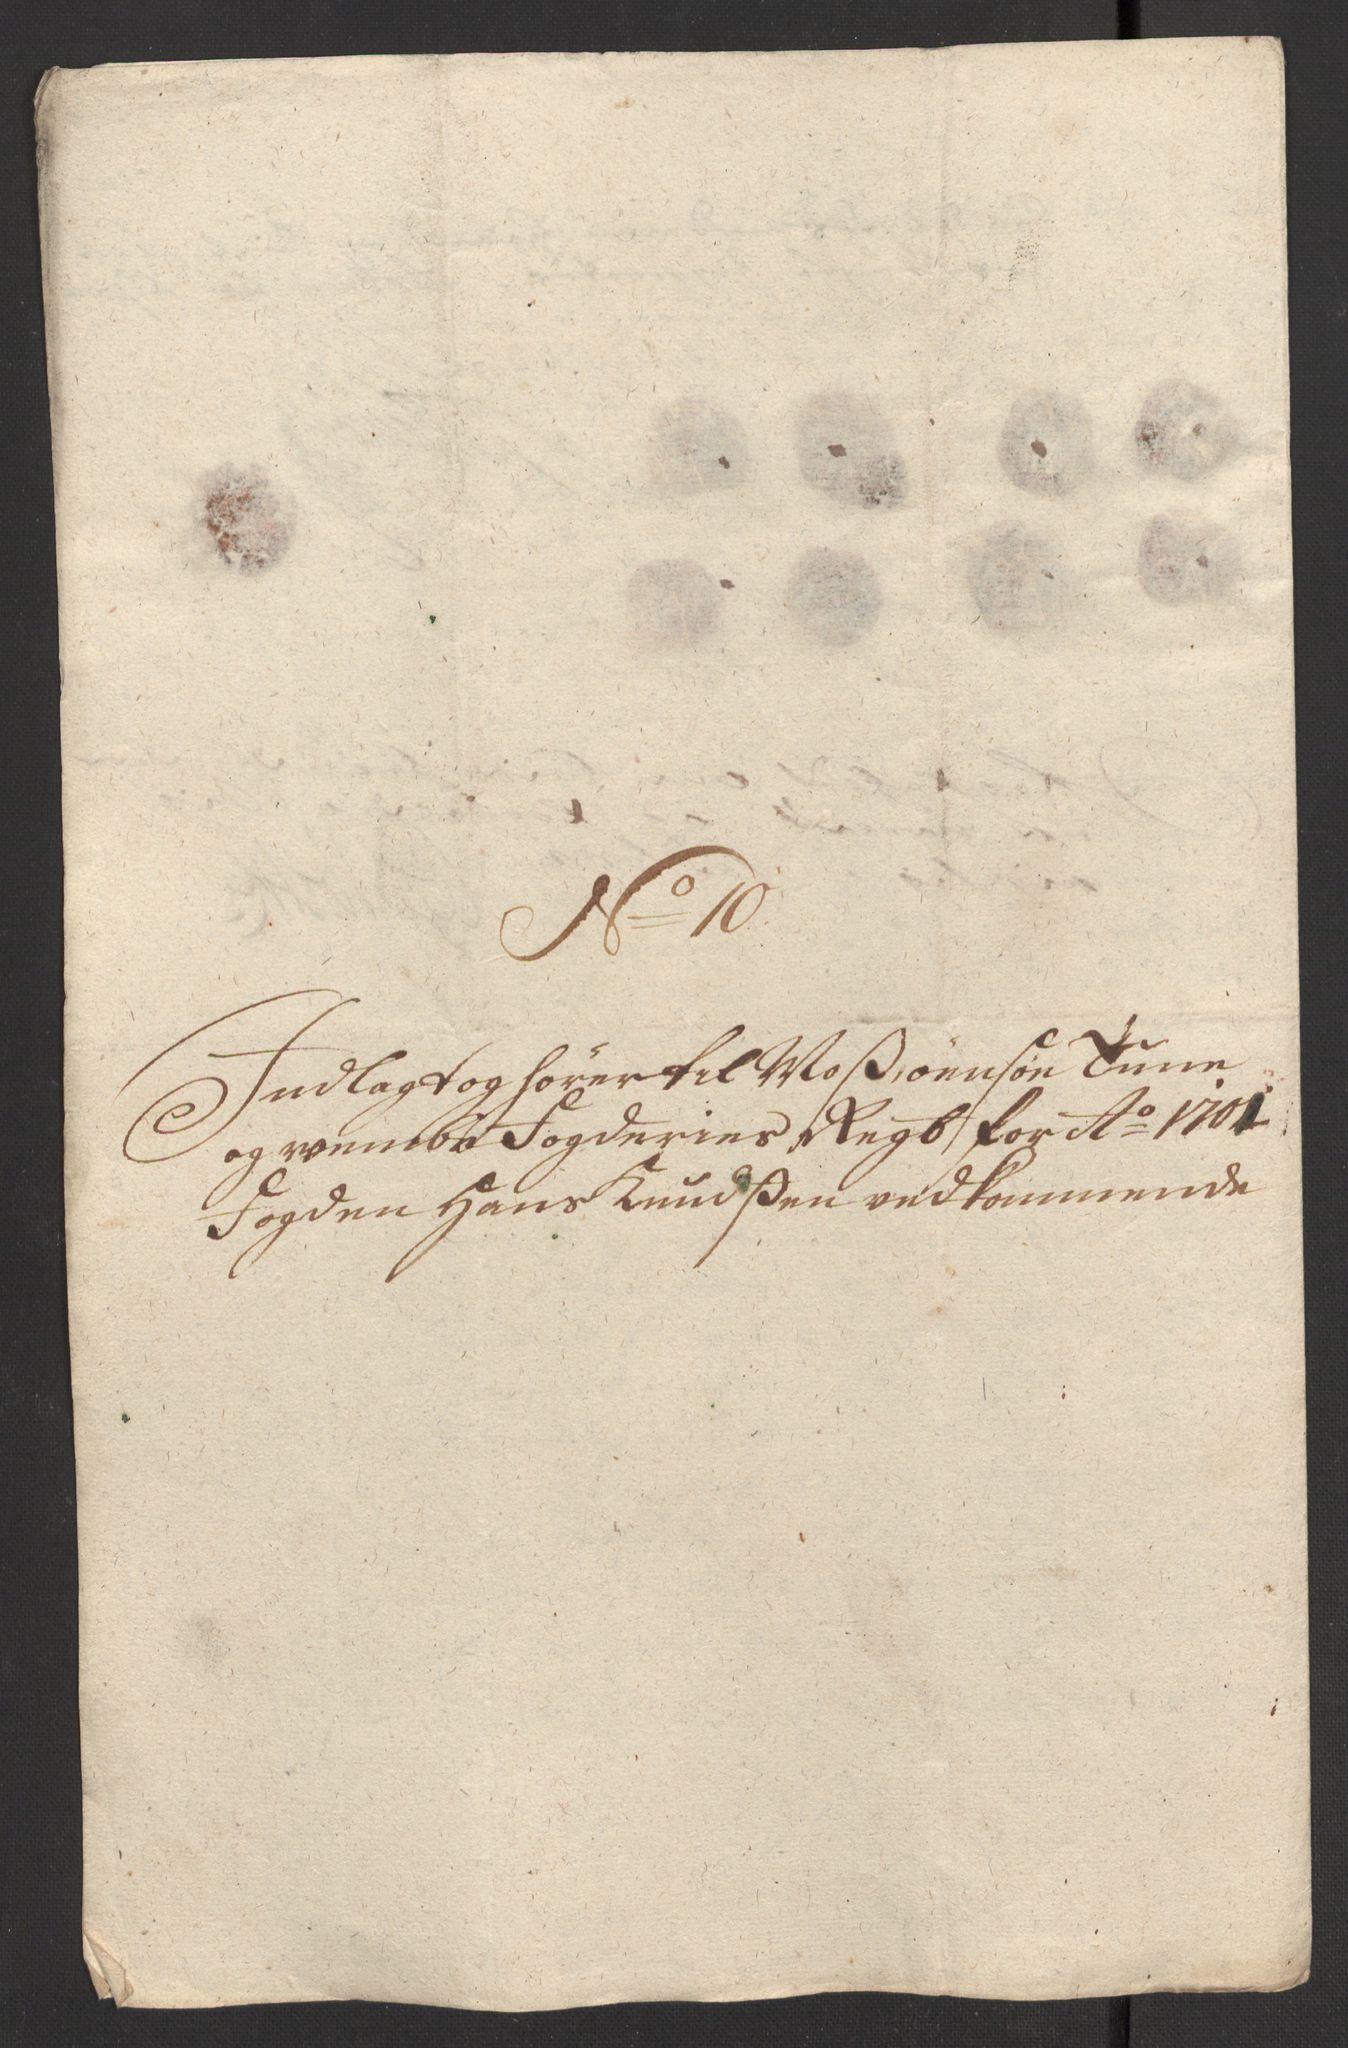 No 10
Indlagt og hörer til Moß, öensöe Tune
og wembe Fogderies Regb for Ao 1701
Fogden Hans Knudßen vedkommende